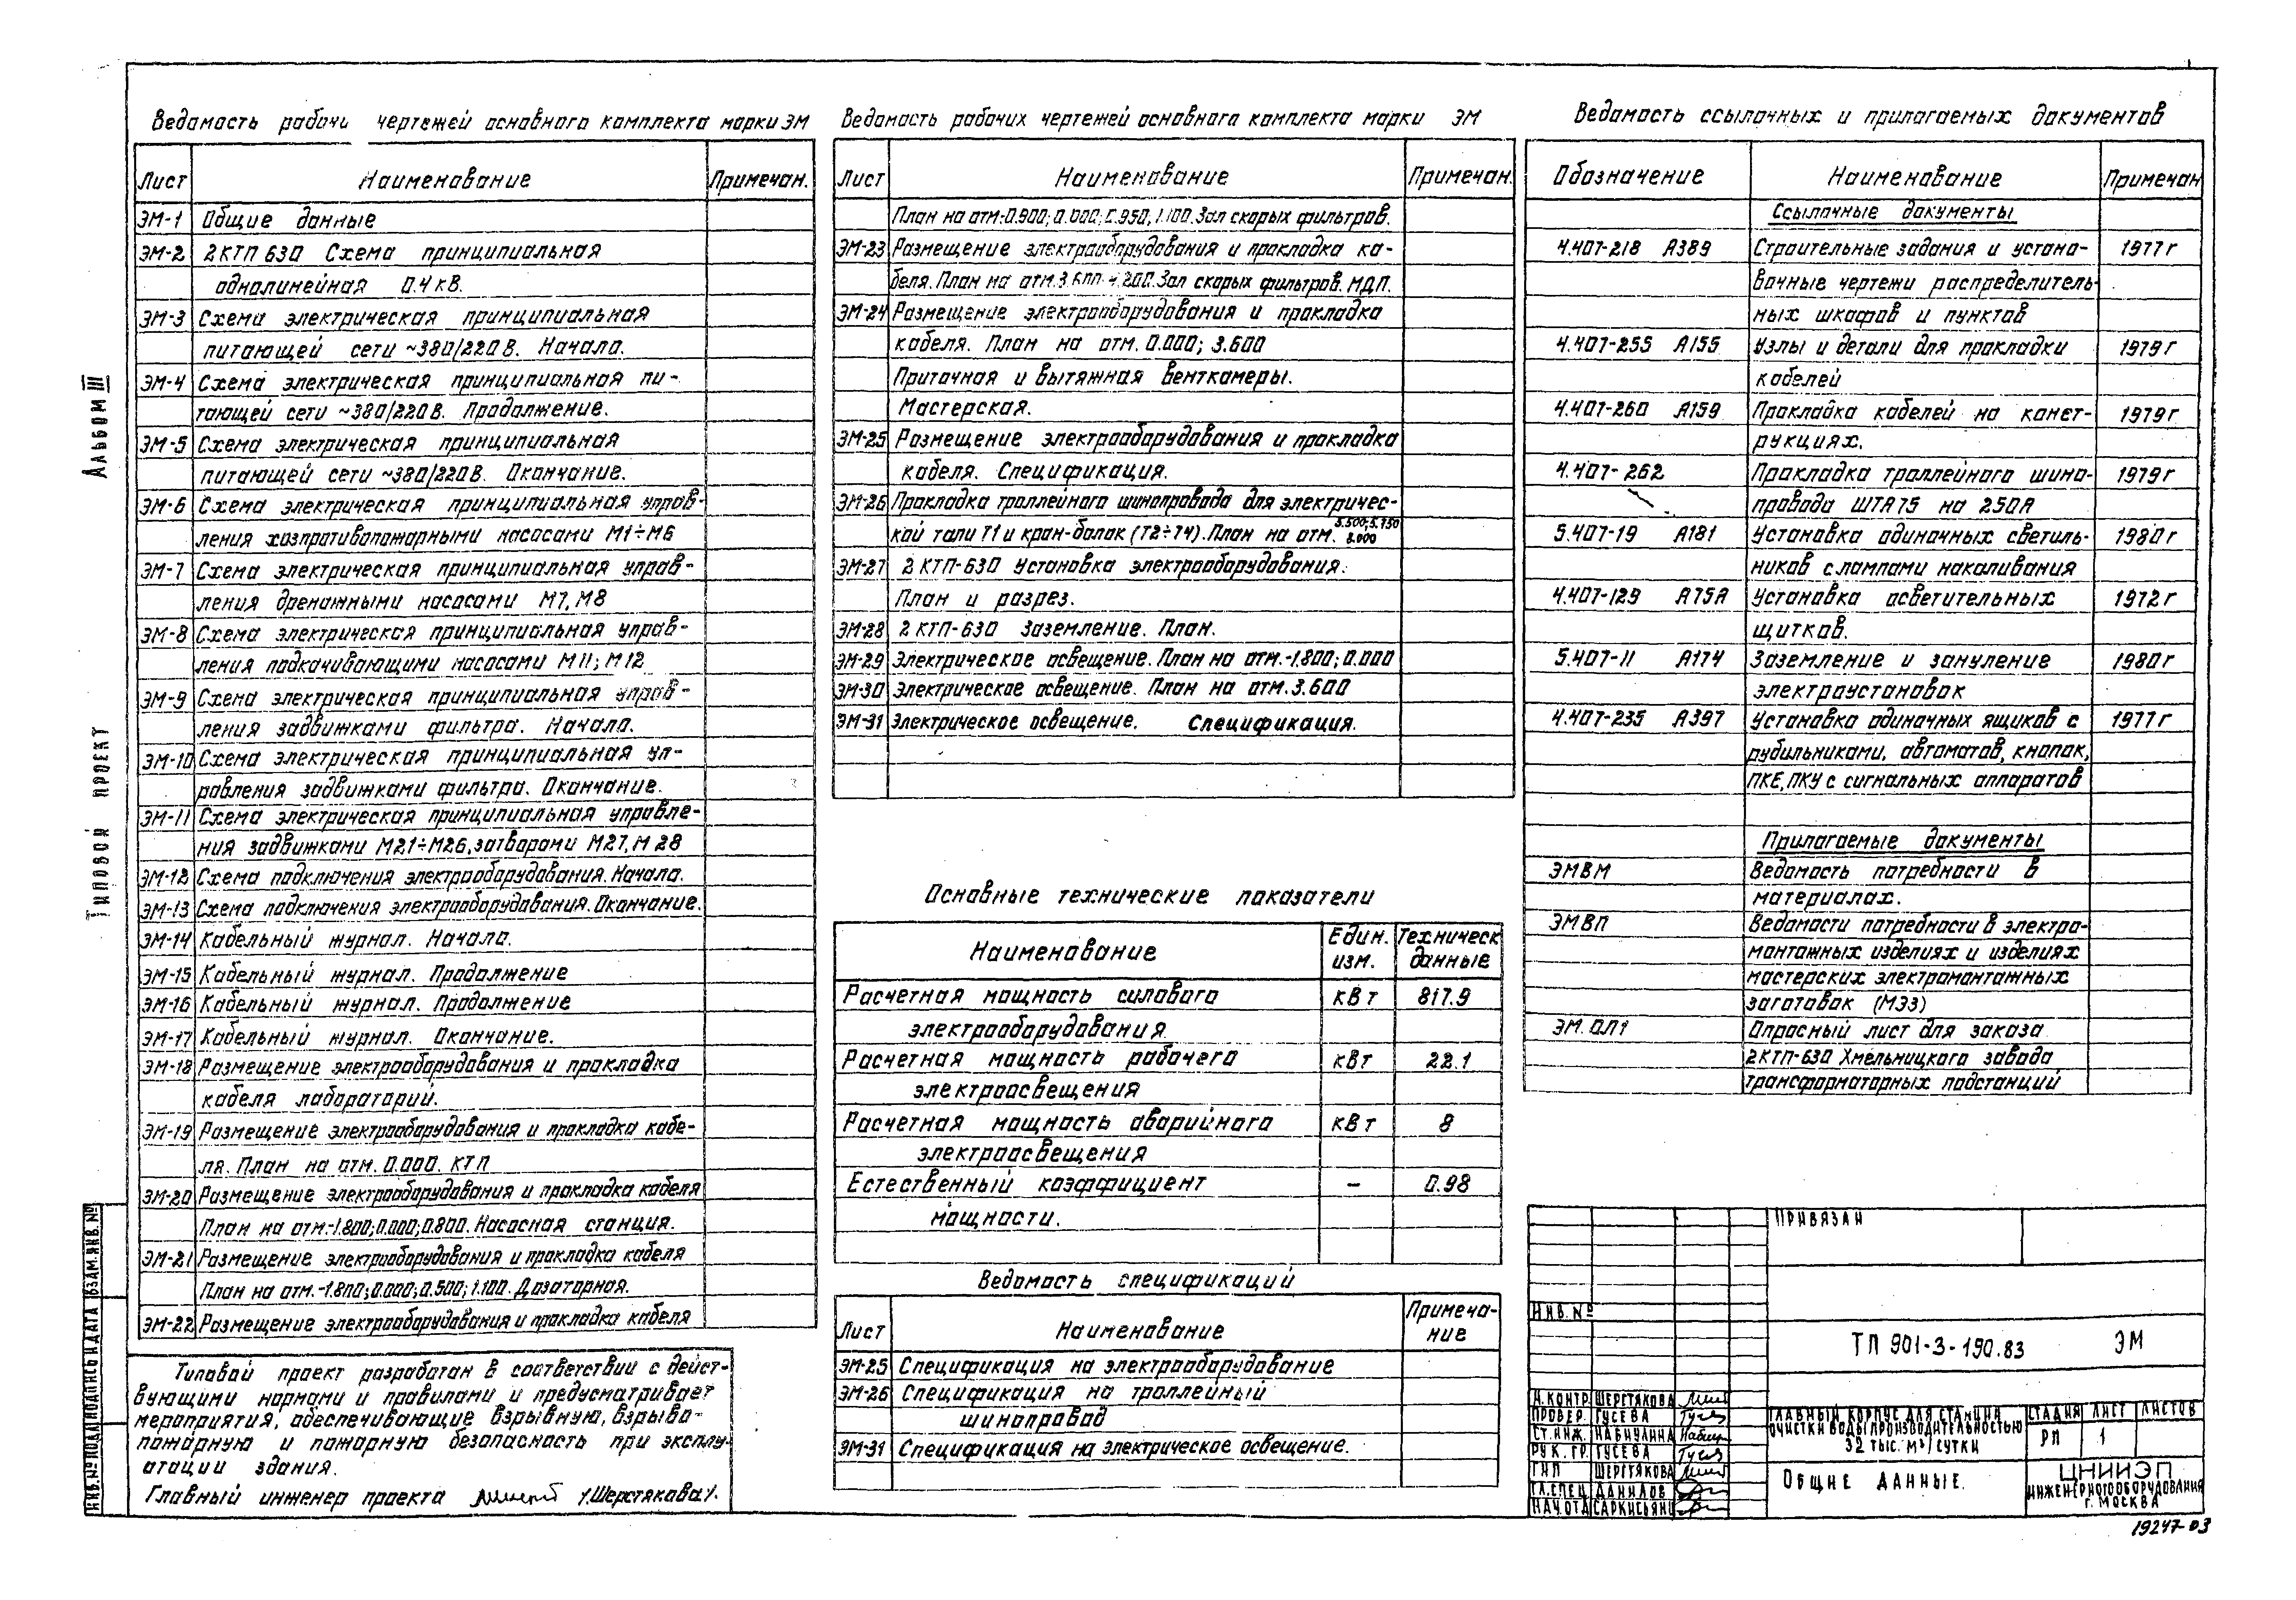 Ведомость рабочи чертежей основного комплекта марки ЭМ
Лист Наименование Примечан.
ЭМ-1 Общие данные
ЭМ-2 2КТП 630 Схема принципиальная
однолинейная 0.4 кВ.
ЭМ-3 Схема электрическая принципиальная
питающей сети ~380/220В. Начало.
ЭМ-4 Схема электрическая принципиальная пи-
тающей сети ~380/220В. Продолжение.
ЭМ-5 Схема электрическая принципиальная
питающей сети ~380/220В. Окончание.
ЭМ-6 Схема электрическая принципиальная управ-
ления хозпротивопожарными насосами М1÷М6
ЭМ-7 Схема электрическая принципиальная управ-
ления дренажными насосами М7, М8
ЭМ-8 Схема электрическая принципиальная управ-
ления подкачивающими насосами М11; М12
ЭМ-9 Схема электрическая принципиальная управ-
ления задвижками фильтра. Начало.
ЭМ-10 Схема электрическая принципиальная уп-
равления задвижками фильтра. Окончание.
ЭМ-11 Схема электрическая принципиальная управле-
ния задвижками М21÷М26, затворами М27, М28
ЭМ-12 Схема подключения электрооборудования. Начало.
ЭМ-13 Схема подключения электрооборудования. Окончание.
ЭМ-14 Кабельный журнал. Начало.
ЭМ-15 Кабельный журнал. Продолжение
ЭМ-16 Кабельный журнал. Продолжение
ЭМ-17 Кабельный журнал. Окончание.
ЭМ-18 Размещение электрооборудования и прокладка
кабеля лабораторий.
ЭМ-19 Размещение электрооборудования и прокладка кабе-
ля. План на отм. 0.000. КТП
ЭМ-20 Размещение электрооборудования и прокладка кабеля
План на отм.-1.800; 0.000; 0.800. Насосная станция.
ЭМ-21 Размещение электрооборудования и прокладка кабеля
План на отм. -1.800; 0.000; 0.500; 1.100. Дозаторная.
ЭМ-22 Размещение электрооборудования и прокладка кабеля
Типовой проект разработан в соответствии с дейст-
вующими нормами и правилами и предусматривает
мероприятия, обеспечивающие взрывную, взрыво-
пожарную и пожарную безопасность при эксплу-
атации здания.
Главный инженер проекта /.Шерстякова/.
Ведомость рабочих чертежей основного комплекта марки ЭМ
Лист Наименование Примечан.
План на отм.-0.900; 0.000; 0.950; 1.100. Зал скорых фильтров.
ЭМ-23 Размещение электрооборудования и прокладка ка-
беля. План на отм. 3.600; 4.200. Зал скорых фильтров. МДП.
ЭМ-24 Размещение электрооборудования и прокладка
кабеля. План на отм. 0.000; 3.600
Приточная и вытяжная венткамеры.
Мастерская.
ЭМ-25 Размещение электрооборудования и прокладка
кабеля. Спецификация.
ЭМ-26 Прокладка троллейного шинопровода для электричес-
кой тали Т1 и кран-балок (Т2÷Т4). План на отм. 8.000
ЭМ-27 2 КТП-630 Установка электрооборудования.
План и разрез.
ЭМ-28 2 КТП-630 Заземление. План.
ЭМ-29 Электрическое освещение. План на отм.-1.800; 0.000
ЭМ-30 Электрическое освещение. План на отм. 3.600
ЭМ-31 Электрическое освещение. Спецификация.
Основные технические показатели
Наименование Един. изм. Техническ данные
Расчетная мощность силового кВт 817.9
электрооборудования.
Расчетная мощность рабочего кВт 22.1
электроосвещения
Расчетная мощность аварийного кВт 8
электроосвещения
Естественный коэффициент – 0.98
мощности.
Ведомость спецификаций
Лист Наименование Примеча-
ние
ЭМ-25 Спецификация на электрооборудование
ЭМ-26 Спецификация на троллейный
шинопровод
ЭМ-31 Спецификация на электрическое освещение.
Ведомость ссылочных и прилагаемых документов
Обозначение Наименование Примечан
Ссылочные документы
4.407-218 А389 Строительные задания и устано- 1977г
вочные чертежи распределитель-
ных шкафов и пунктов
4.407-255 А155 Узлы и детали для прокладки 1979г
кабелей
4.407-260 А159 Прокладка кабелей на конст- 1979г
рукциях.
4.407-262 Прокладка троллейного шино- 1979г
провода ШТА75 на 250А
5.407-19 А181 Установка одиночных светиль- 1980г
ников с лампами накаливания
4.407-129 А75А Установка осветительных 1972г
щитков.
5.407-11 А174 Заземление и зануление 1980г
электроустановок
4.407-235 А397 Установка одиночных ящиков с 1977г
рубильниками, автоматов, кнопок,
ПКЕ, ПКУ с сигнальных аппаратов
Прилагаемые документы
ЭМВМ Ведомость потребности в
материалах.
ЭМВП Ведомости потребности в электро-
монтажных изделиях и изделиях
мастерских электромонтажных
заготовок (МЭЗ)
ЭМ.ОЛ1 Опросный лист для заказа
2КТП-630 Хмельницкого завода
трансформаторных подстанций
Привязан
Инв. №
ТП 901-3-190.83 ЭМ
Н.контр. Шерстякова
Провер. Гусева
Ст.инж. Набиулина
Рук. гр. Гусева
ГИП Шерстякова
Гл.спец. Данилов
Нач.отд Саркисьянц
Главный корпус для станции
очистки воды производительностью
32 тыс. м³/сутки
Стадия Лист Листов
РП 1
Общие данные.
ЦНИИЭП
инженерного оборудования
г. Москва
19247-03
Альбом III
Типовой проект
Инв. № подл. Подпись и дата Взам. инв. №